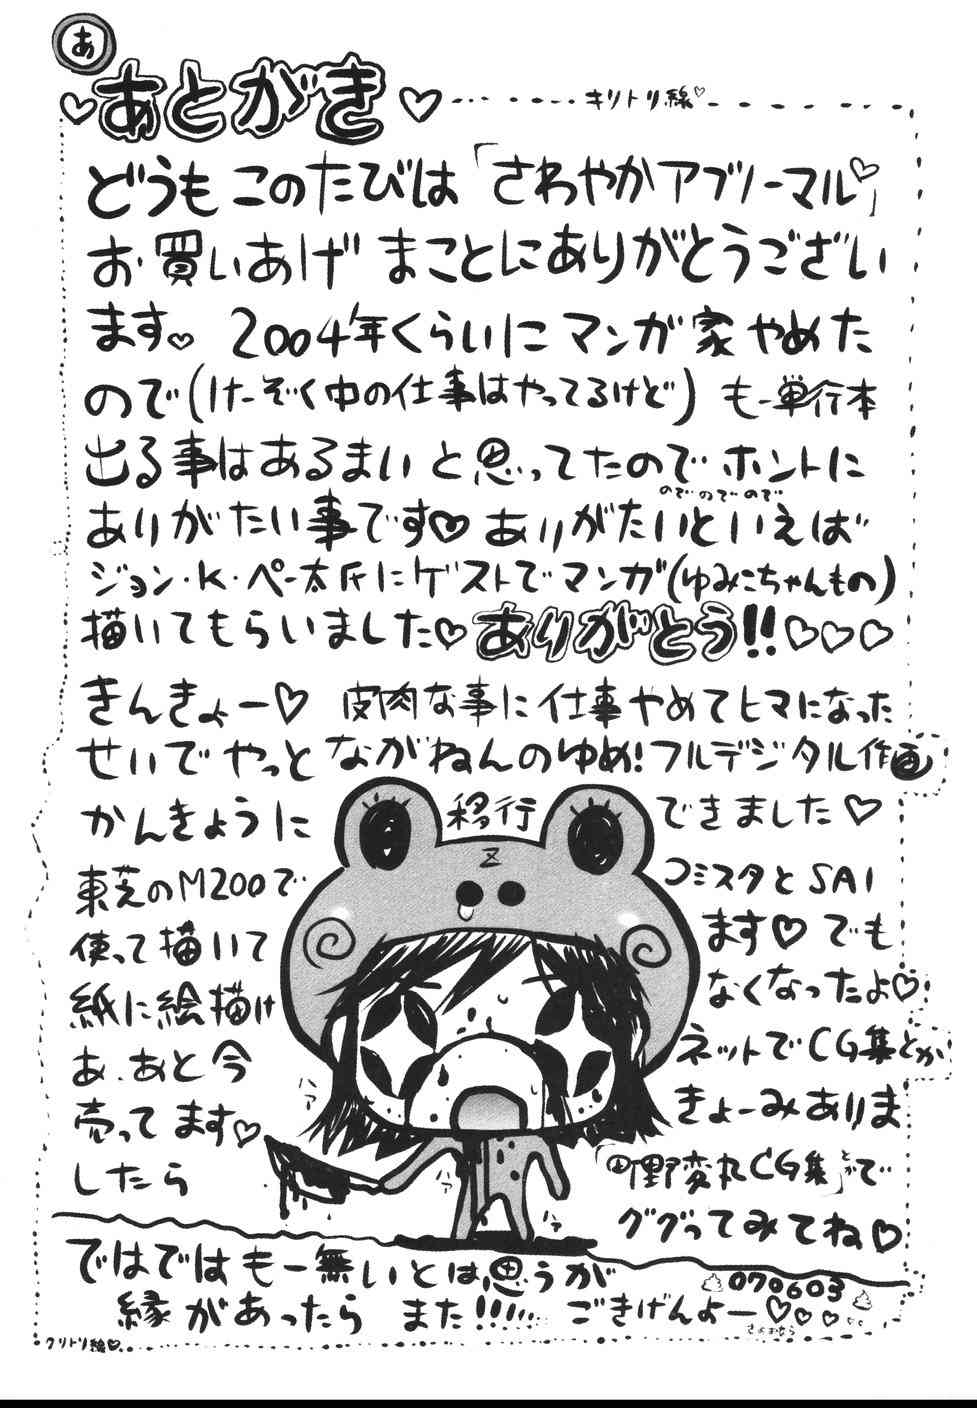 あ
あとがき
キリトリ線♡
どうも このたびは「さわやかアブノーマル♡」
お買いあげ まことにありがとうござい
ます♡ 2004年くらいに マンガ家 やめた
ので(けーぞく中の仕事はやってるけど) も一単行本
出る事はあるまい と思ってたので ホントに
のでのでので
ありがたい事です♡ ありがたいといえば
ジョン・K・ペー太氏にゲストでマンガ(ゆみこちゃんもの)
描いてもらいました♡ ありがとう!!♡♡♡
きんきょー♡ 皮肉な事に仕事やめてヒマになった
せいで やっと ながねんのゆめ!フルデジタル作画
かんきょうに 移行 できました♡
Z
東芝のM200で コミスタと SAI
使って描いて ます♡ でも
紙に絵描け なくなったよ♡
あ、あと今 ネットでCG集とか
売ってます♡ きょーみありま
したら 「町野変丸CG集」とかで
ググってみてね♡
ハァ
ハァ
ハァ
ではでは も一無いとは思うが
縁があったら また!!!
ごきげんよー♡♡♡♡
070603
さよおなら
クリトリ線♡